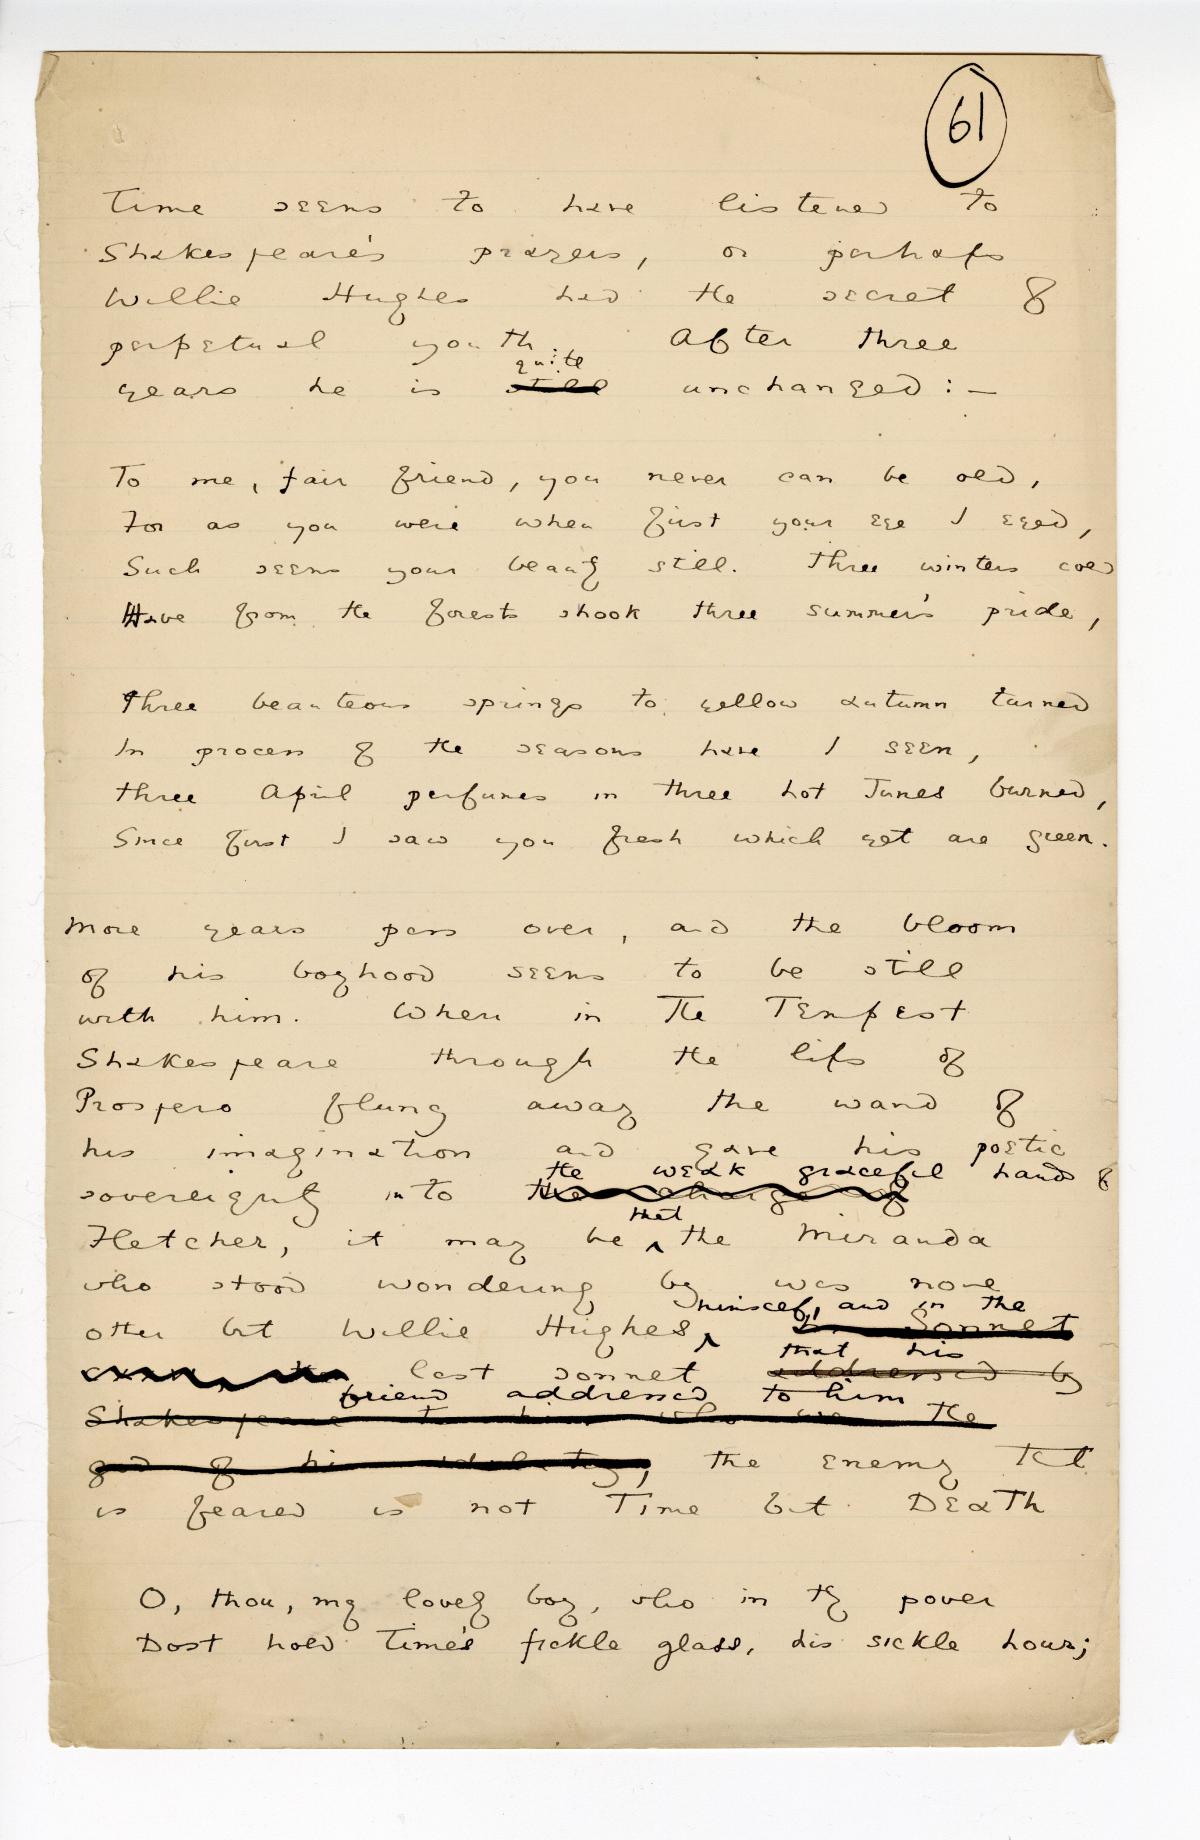 61
Time seems to have listened to
Shakespeare's prayers, or perhaps
Willie Hughes had the secret of
perpetual youth. After three
quite
years he is still unchanged : —
To me, fair friend, you never can be old,
For as you were when first your eye I eyed,
Such seems your beauty still. Three winters cold
Have from the forests shook three summer's pride,
Three beauteous springs to yellow autumn turned
In process of the seasons have I seen,
Three April perfumes in three hot Junes burned,
Since first I saw you fresh which yet are green.
More years pass over, and the bloom
of his boyhood seems to be still
with him. When in The Tempest
Shakespeare through the lips of
Prospero flung away the wand of
his imagination and gave his poetic
the weak graceful hands of
sovereignty into the charge of
that
Fletcher, it may be ^ the Miranda
who stood wondering by was none
himself, and in the
other but Willie Hughes, ^ Sonnet
that his
last sonnet addressed by
friend addressed to him
Shakespeare to him who was the
god of his idolatry, the enemy that
is feared is not Time but Death
O, thou, my lovely boy, who in thy power
Dost hold Time's fickle glass, his sickle hour;